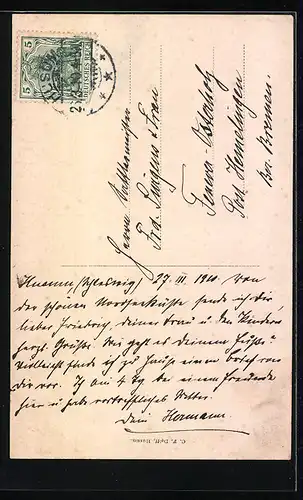 5
DEUTSCHES REICH
HUSUM
27.3.10
Herrn
Frd. Jürgens u. Frau
Tenever-Osterholz
Post Hemelingen
bei Bremen.
Husum, (Schleswig) 27. III. 1910. Von
der schönen Nordseeküste sende ich dir,
lieber Friedrich, deiner Frau u. den Kindern
herzl. Grüße. Wie geht es deinem Fuße?
Vielleicht finde ich zu Hause einen Brief von
dir vor. Ich bin 4 Tg. bei einem Freunde
hier u. habe vortreffliches Wetter.
Dein Hermann.
C. F. Delff, Husum.